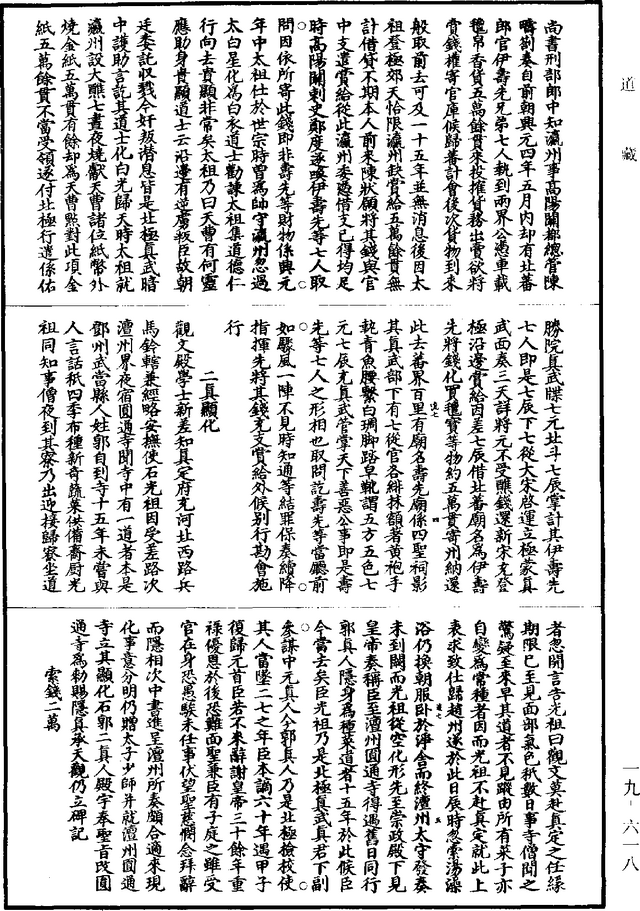 道藏
尚書刑部郎中知瀛州事高陽關都總管陳
疇劄奏自前朝興元四年五月內却有北蕃
郎官伊壽先兄弟七人執到兩界公憑車載
氊帛香貨五萬餘貫來投榷貨務出賣欲將
賣錢權寄官庫候歸蕃計會後次貨物到來
般取前去可及一十五年並無消息後因太
祖登極郊天恰限瀛州缺賞給五萬餘貫無
計借貸不期本人前來陳狀願將其錢與官
中支遣賞給從此瀛州委憑借支已得均足
時高陽關刺史鄭度遂喚伊壽先等七人取
問因依所寄此錢即非壽先等財物係興元
年中太祖仕於世宗時曾為帥守瀛州忽遇
太白星化為白衣道士勸諫太祖集道德仁
行向去貴顯非常矣太祖乃曰天曹有何靈
應助身貴顯道士云沿邊有逆虜叛臣故朝
廷委託收戮令奸叛潛息皆是北極真武暗
中護助言訖其道士化白光歸天時太祖就
瀛州設大醮七晝夜燒獻天曹諸位紙幣外
燒金紙五萬貫有餘却為天曹點對此項金
紙五萬餘貫不當受領遂付北極行遣係佑
勝院真武牒七元北斗七辰掌計其伊壽先
七人即是七辰下七從大宋啓運立極蒙真
武面奏三天詳將元不受醮錢還新宋充登
極沿邊賞給因差七辰借北蕃廟名為伊壽
先將錢化買氊寶等物約五萬貫寄州納還
此去蕃界百里有廟名壽先廟係四聖祠影
其真武部下有七從官各緋抹額者黃袍手
執青魚腰繫白琱脚踏皁靴謂五方五色七
元七辰充真武管掌天下善惡公事即是壽
先等七人之形相也取問訖壽先等當廳前
如驟風一陣不見時知通等結罪保奏續降
指揮先將其錢充支賞給外候別行勘會施
行
二真顯化
觀文殿學士新差知真定府充河北西路兵
馬鈐轄兼經略安撫使石光祖因受差路次
澶州界夜宿圓通寺聞寺中有一道者本是
鄧州武當縣人姓郭自到寺十五年未嘗與
人言話秖四季布種新奇蔬菜供備齋厨光
祖同知事僧夜到其寮乃出迎接歸寮坐道
者忽開言告光祖曰觀文莫赴真定之任緣
期限已至見面部氣色秖數日事寺僧聞之
驚疑至來早其道者不見蹤由所有菜子亦
自變為常種者因而光祖不赴真定就此上
表求致仕歸趙州遂於此日辰時忽索湯澡
浴仍換朝服卧於淨舍而終澶州太守發奏
未到闕而光祖從空化形先至崇政殿下見
皇帝奏稱臣至澶州圓通寺得遇舊日同行
郭真人隱身為種菜道者十五年於此候臣
今當去矣臣光祖乃是北極真武真君下副
參謀中元真人今郭真人乃是北極檢校使
其人當墜二七之年臣本謫六十年遇甲子
復歸元首臣若不來辭謝皇帝三十餘年重
祿優恩於後恐難面聖兼臣有子庭之雖受
官在身恐愚騃未任事伏望聖慈憫念拜辭
而隱相次中書進呈澶州所奏頗合適來現
化事意分明仍贈太子少師并就澶州圓通
寺立其顯化石郭二真人殿宇奉聖旨改圓
通寺為勑賜隱真承天觀仍立碑記
索錢二萬
一九-六一八